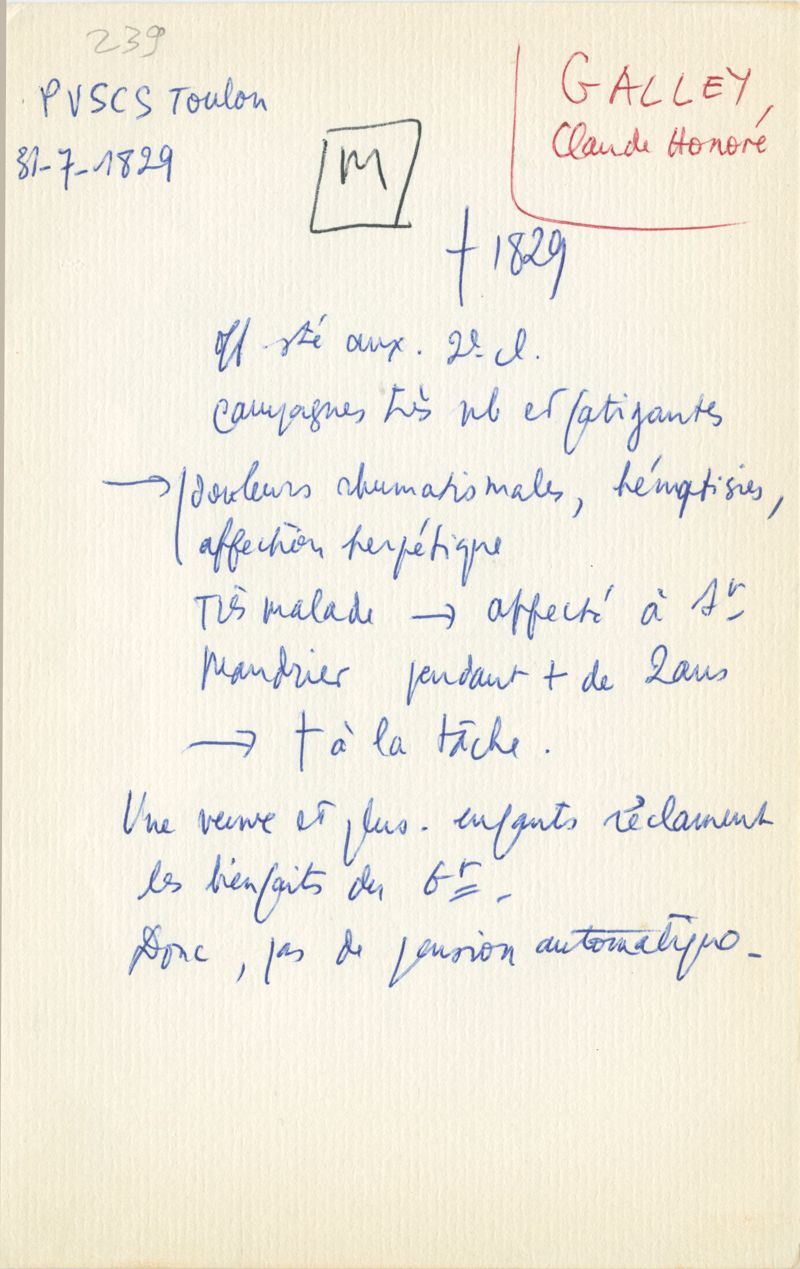 239
PVSCS Toulon
31-7-1829
M
GALLEY,
Claude Honoré
† 1829
Off sté aux. 2e cl.
campagnes très nb et fatigantes
→ douleurs rhumatismales, hémoptisies,
affection herpétique
Très malade → affecté à St
Mandrier pendant + de 2 ans
→ † à la tâche.
Une veuve et plus. enfants réclament
les bienfaits du Gt.
Donc, pas de pension automatique_